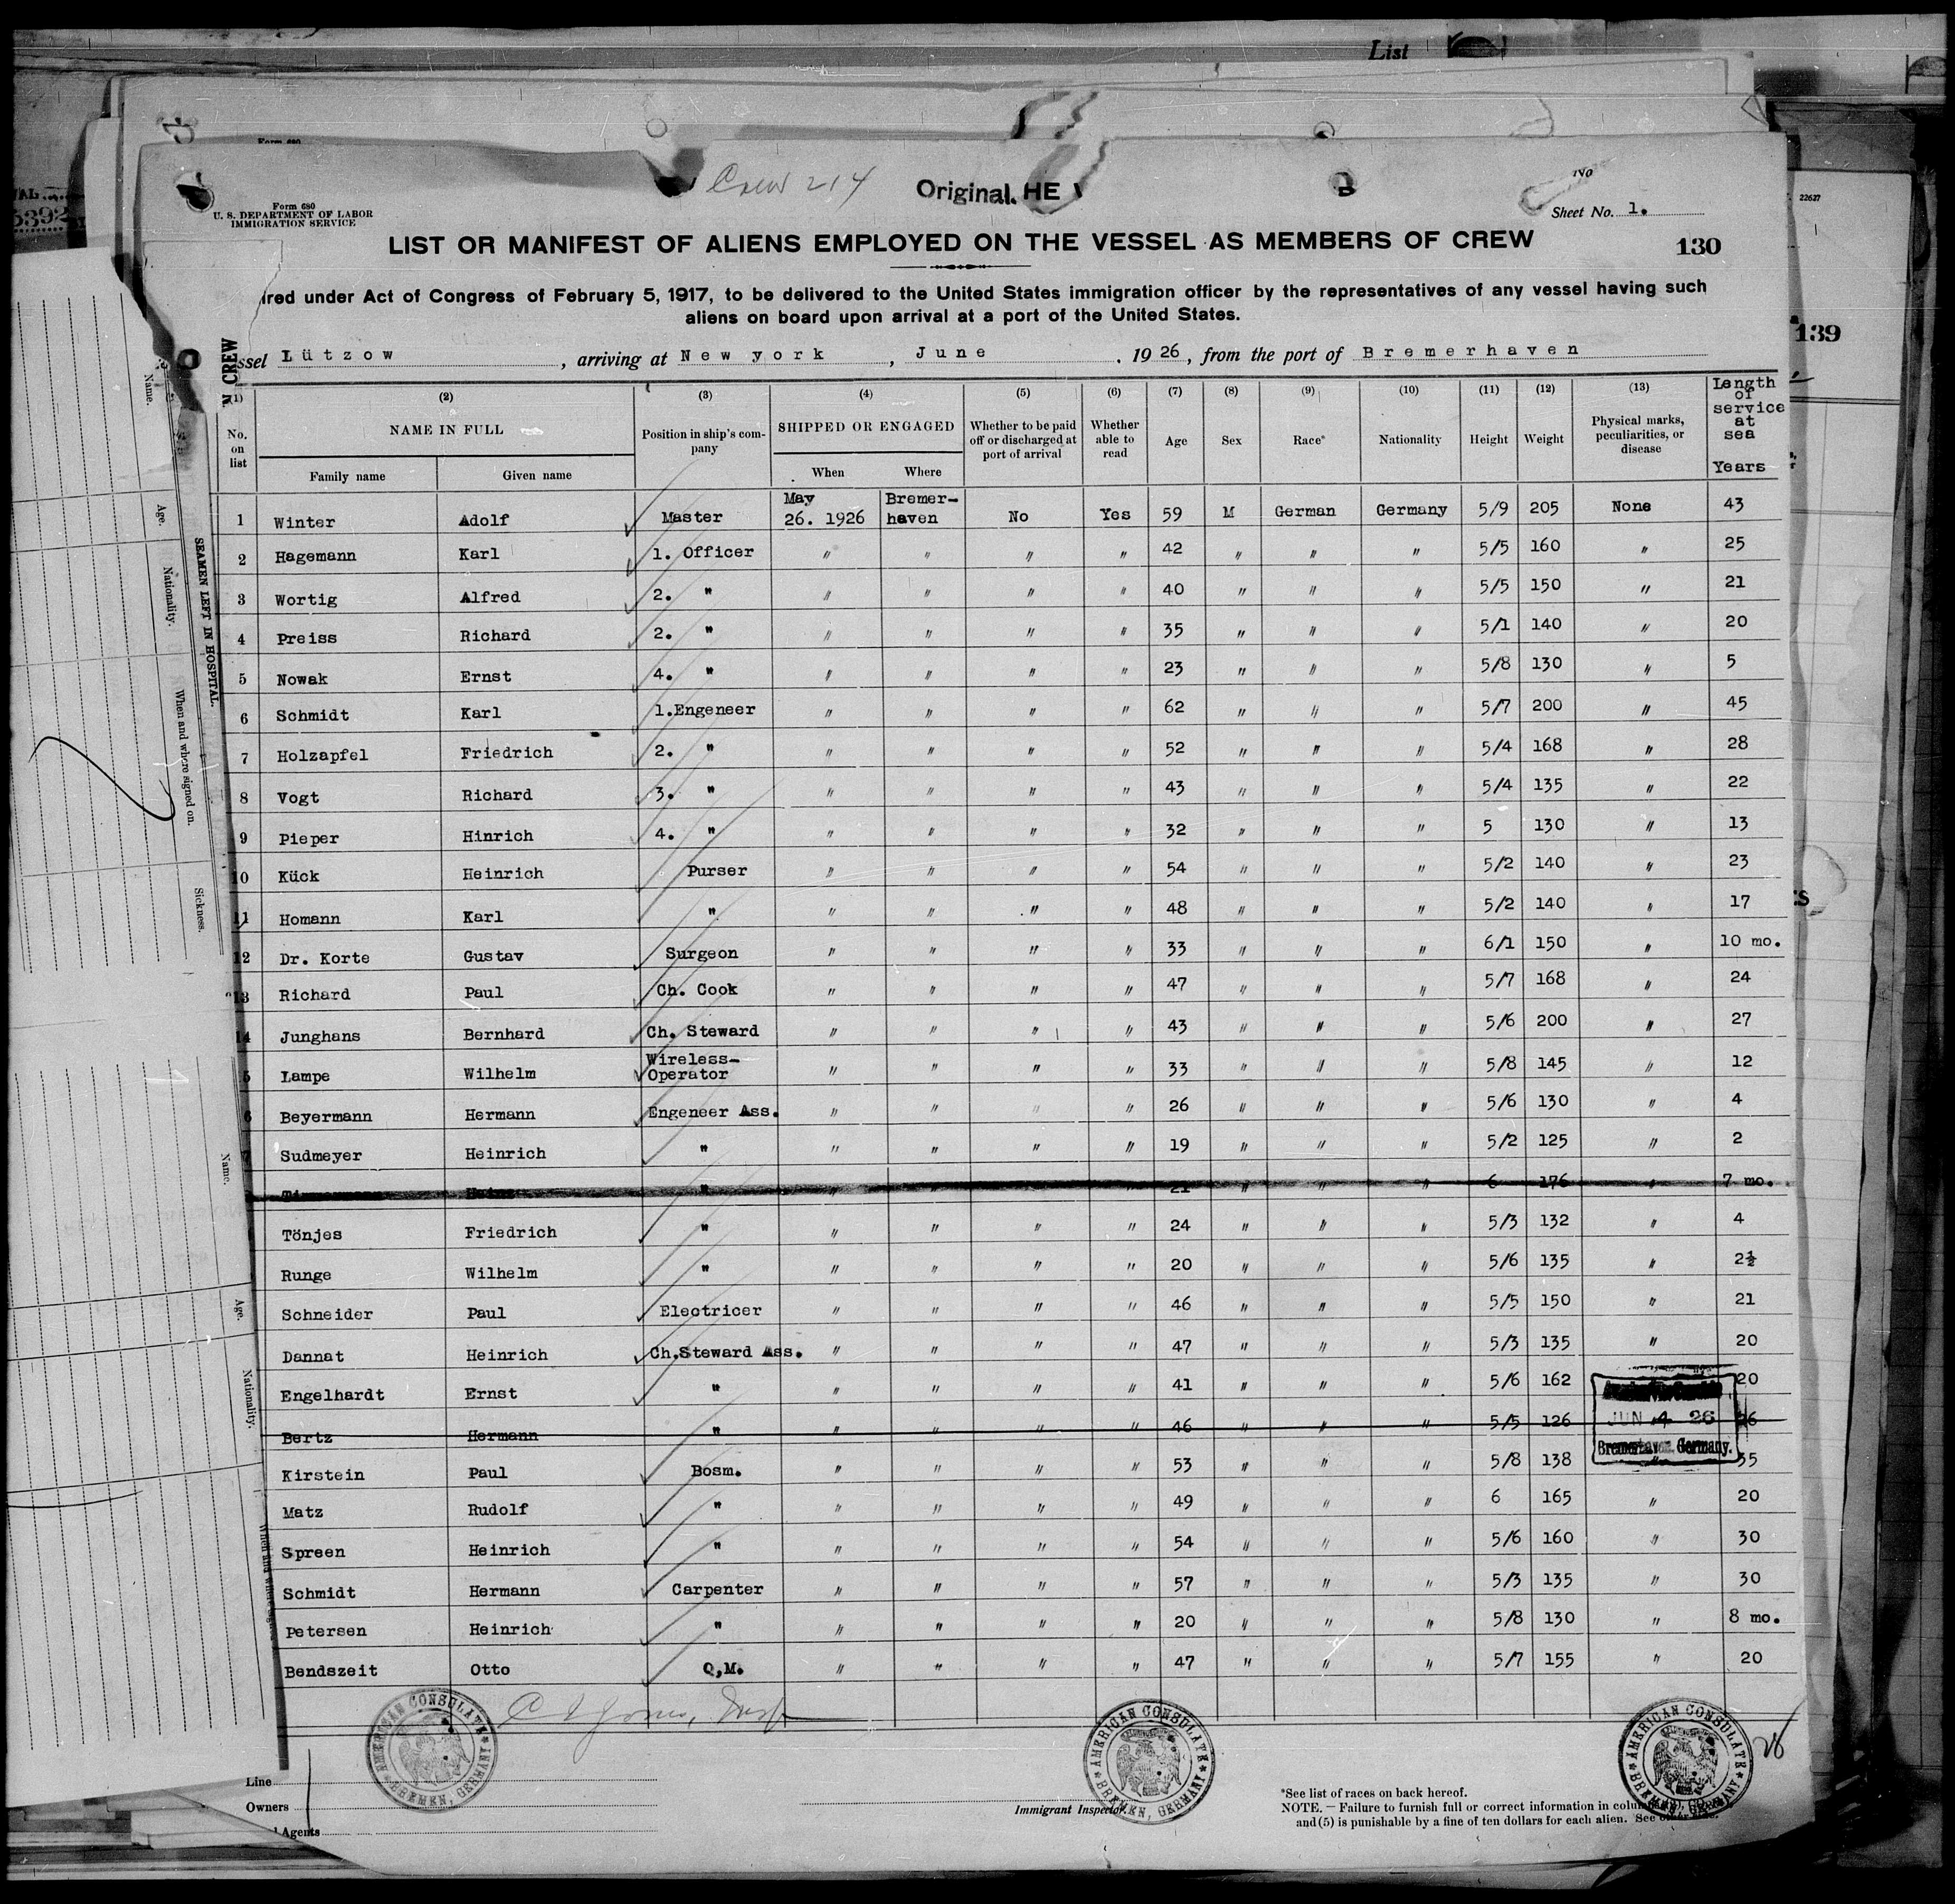 List
Form 680
Crew 214
Original. HE
B
No
Form 680
U. S. DEPARTMENT OF LABOR
IMMIGRATION SERVICE
Sheet No. 1.
22627
5392
LIST OR MANIFEST OF ALIENS EMPLOYED ON THE VESSEL AS MEMBERS OF CREW
130
ired under Act of Congress of February 5, 1917, to be delivered to the United States immigration officer by the representatives of any vessel having such
aliens on board upon arrival at a port of the United States.
139
ssel Lützow, arriving at New york, June, 1926, from the port of Bremerhaven
N CREW
(1) (2) (3) (4) (5) (6) (7) (8) (9) (10) (11) (12) (13) Length of service at sea Years
No. on list NAME IN FULL Position in ship's company SHIPPED OR ENGAGED Whether to be paid off or discharged at port of arrival Whether able to read Age Sex Race* Nationality Height Weight Physical marks, peculiarities, or disease
Family name Given name When Where
1 Winter Adolf Master May 26. 1926 Bremer-haven No Yes 59 M German Germany 5/9 205 None 43
2 Hagemann Karl 1. Officer " " " " 42 " " " 5/5 160 " 25
3 Wortig Alfred 2. " " " " " 40 " " " 5/5 150 " 21
4 Preiss Richard 2. " " " " " 35 " " " 5/1 140 " 20
5 Nowak Ernst 4. " " " " " 23 " " " 5/8 130 " 5
6 Schmidt Karl 1.Engeneer " " " " 62 " " " 5/7 200 " 45
7 Holzapfel Friedrich 2. " " " " " 52 " " " 5/4 168 " 28
8 Vogt Richard 3. " " " " " 43 " " " 5/4 135 " 22
9 Pieper Hinrich 4. " " " " " 32 " " " 5 130 " 13
10 Kück Heinrich Purser " " " " 54 " " " 5/2 140 " 23
11 Homann Karl " " " " " 48 " " " 5/2 140 " 17
12 Dr. Korte Gustav Surgeon " " " " 33 " " " 6/1 150 " 10 mo.
13 Richard Paul Ch. Cook " " " " 47 " " " 5/7 168 " 24
14 Junghans Bernhard Ch. Steward " " " " 43 " " " 5/6 200 " 27
5 Lampe Wilhelm Wireless-Operator " " " " 33 " " " 5/8 145 " 12
6 Beyermann Hermann Engeneer Ass. " " " " 26 " " " 5/6 130 " 4
7 Sudmeyer Heinrich " " " " " 19 " " " 5/2 125 " 2
Timmermann Heinz " " " " " 21 " " " 6 176 " 7 mo.
Tönjes Friedrich " " " " " 24 " " " 5/3 132 " 4
Runge Wilhelm " " " " " 20 " " " 5/6 135 " 2½
Schneider Paul Electricer " " " " 46 " " " 5/5 150 " 21
Dannat Heinrich Ch.Steward Ass. " " " " 47 " " " 5/3 135 " 20
Engelhardt Ernst " " " " " 41 " " " 5/6 162 20
Bertz Hermann " " " " " 46 " " " 5/5 126 26
Kirstein Paul Bosm. " " " " 53 " " " 5/8 138 " 35
Matz Rudolf " " " " " 49 " " " 6 165 " 20
Spreen Heinrich " " " " " 54 " " " 5/6 160 " 30
Schmidt Hermann Carpenter " " " " 57 " " " 5/3 135 " 30
Petersen Heinrich " " " " " 20 " " " 5/8 130 " 8 mo.
Bendszeit Otto Q,M. " " " " 47 " " " 5/7 155 " 20
JUN 4 26
Bremerhaven. Germany.
AMERICAN CONSULATE
BREMEN, GERMANY
AMERICAN CONSULATE
BREMEN, GERMANY
AMERICAN CONSULATE
BREMEN, GERMANY
28
Line
Owners
Agents
Immigrant Inspector.
*See list of races on back hereof.
NOTE. — Failure to furnish full or correct information in
and (5) is punishable by a fine of ten dollars for each alien. See other side.
SEAMEN LEFT IN HOSPITAL.
Name.
Age.
Nationality.
When and where signed on.
Sickness.
Name.
Age.
Nationality.
When and where